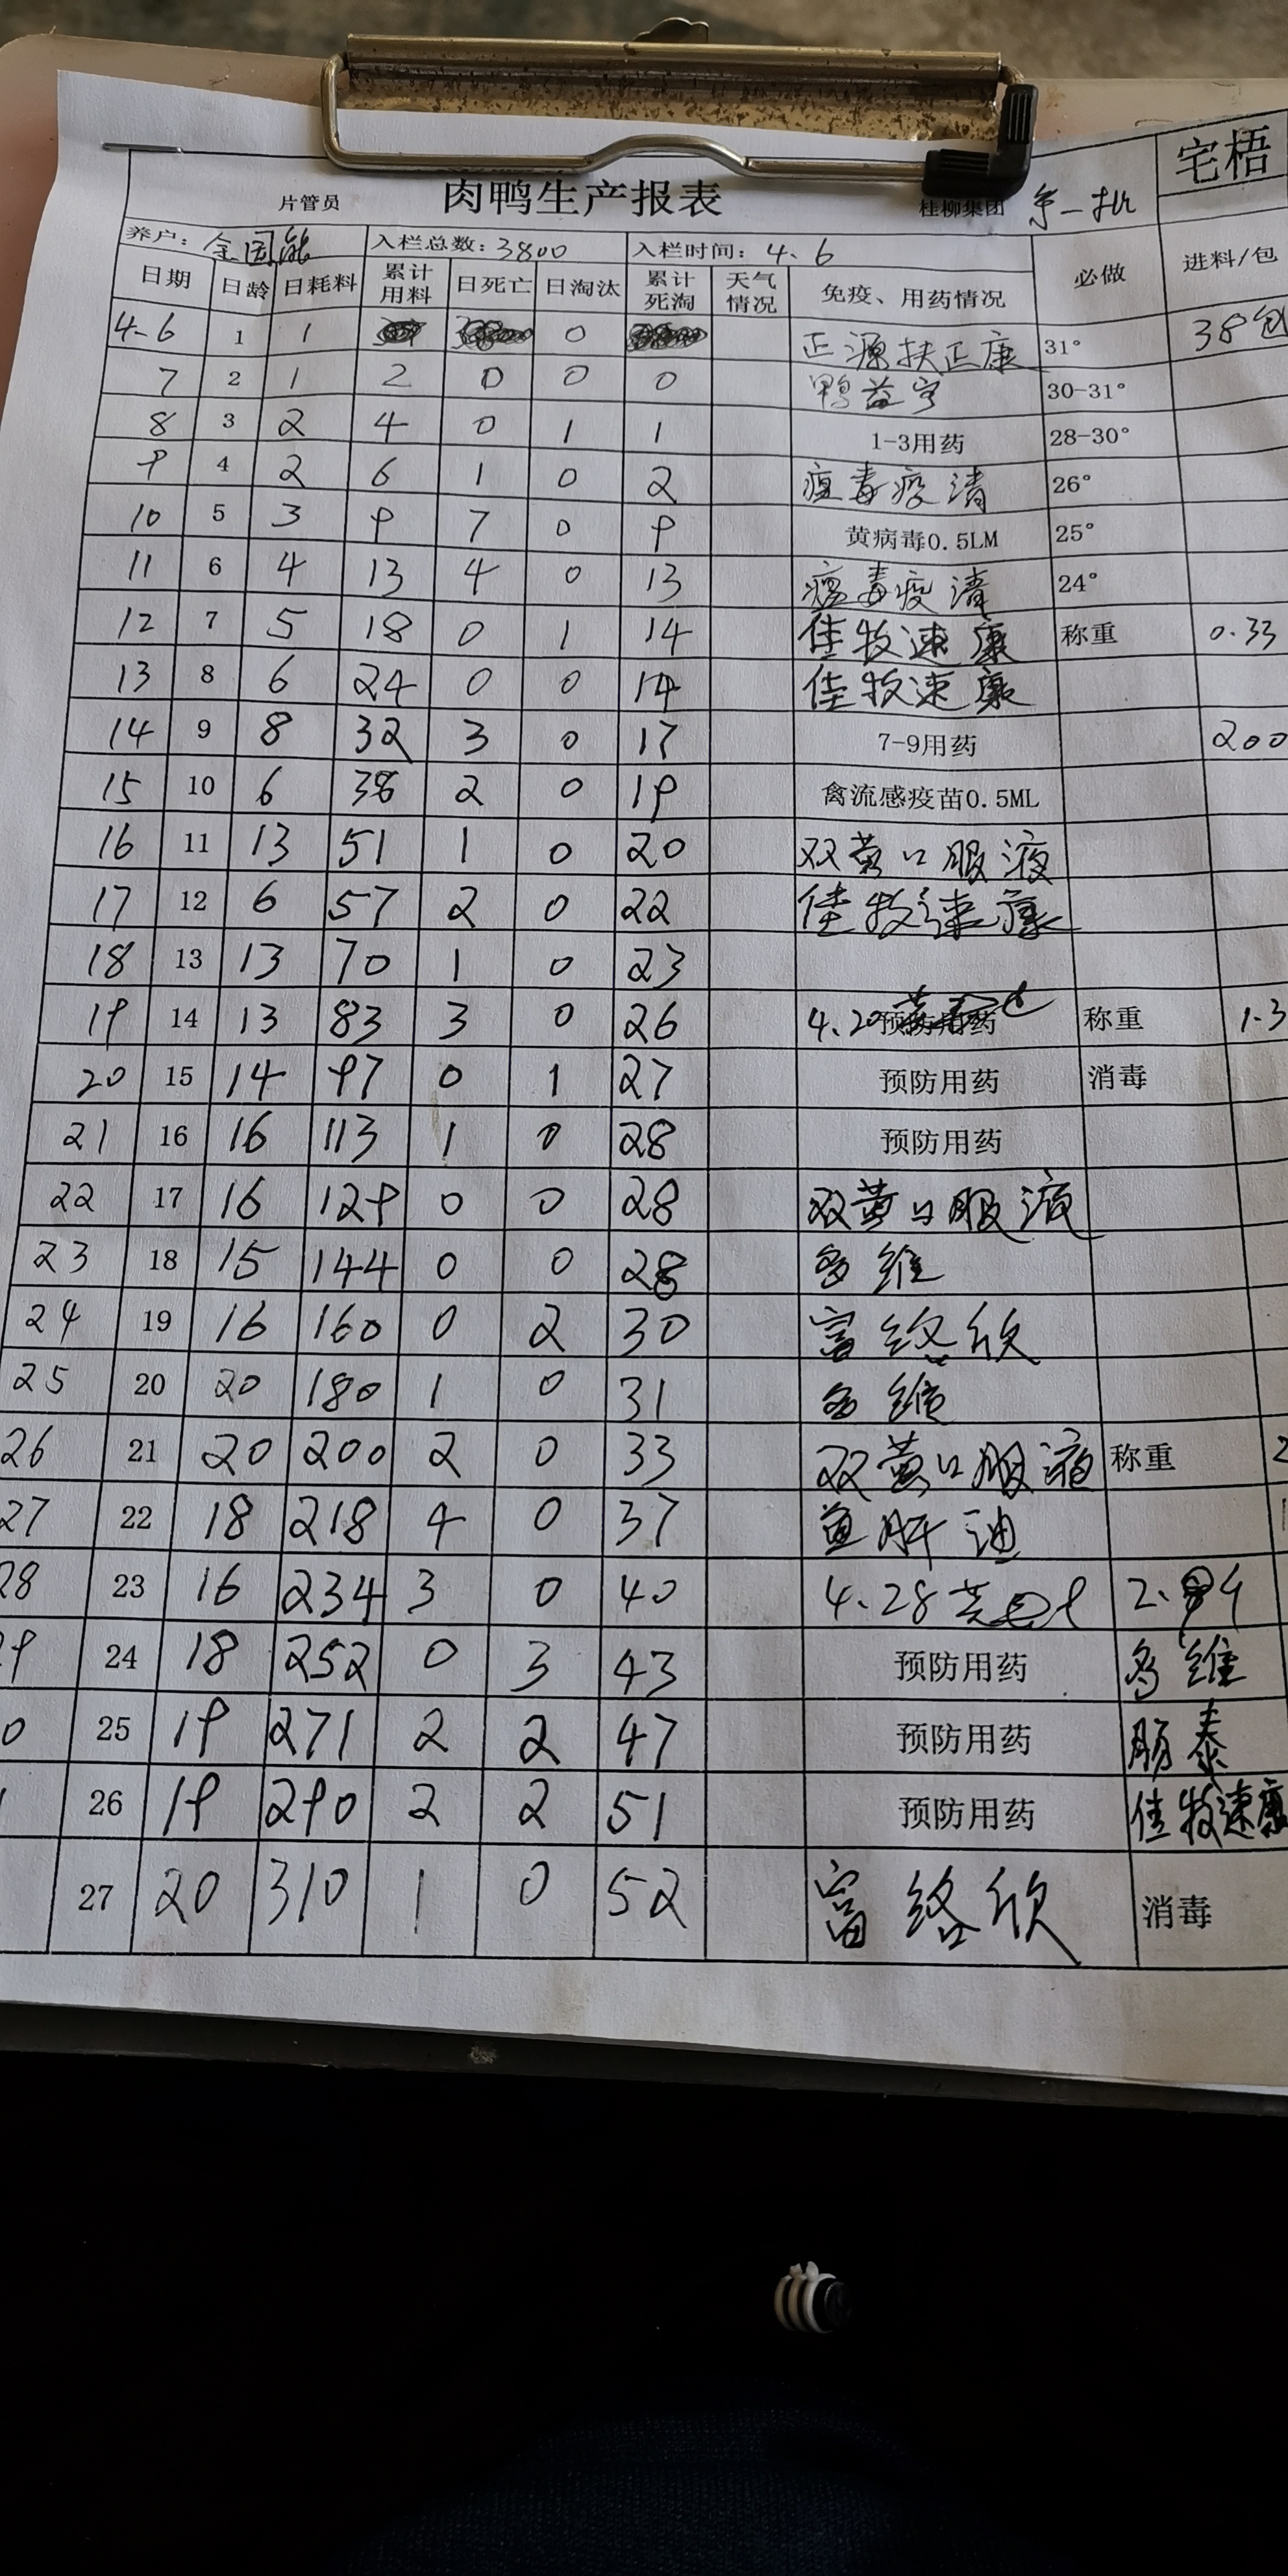 宅梧
片管员 肉鸭生产报表 桂柳集团 第一批
养户: 全国能 入栏总数: 3800 入栏时间: 4.6
日期 日龄 日耗料 累计用料 日死亡 日淘汰 累计死淘 天气情况 免疫、用药情况 必做 进料/包
4-6 1 1 0 正源扶正康 31° 38包
7 2 1 2 0 0 0 鸭益宁 30-31°
8 3 2 4 0 1 1 1-3用药 28-30°
9 4 2 6 1 0 2 瘟毒疫清 26°
10 5 3 9 7 0 9 黄病毒0.5LM 25°
11 6 4 13 4 0 13 瘟毒疫清 24°
12 7 5 18 0 1 14 佳牧速康 称重 0.33
13 8 6 24 0 0 14 佳牧速康
14 9 8 32 3 0 17 7-9用药 200
15 10 6 38 2 0 19 禽流感疫苗0.5ML
16 11 13 51 1 0 20 双黄口服液
17 12 6 57 2 0 22 佳牧速康
18 13 13 70 1 0 23
19 14 13 83 3 0 26 4.20 预防用药 称重 1.3
20 15 14 97 0 1 27 预防用药 消毒
21 16 16 113 1 0 28 预防用药
22 17 16 129 0 0 28 双黄口服液
23 18 15 144 0 0 28 多维
24 19 16 160 0 2 30 富络欣
25 20 20 180 1 0 31 多维
26 21 20 200 2 0 33 双黄口服液 称重 2
27 22 18 218 4 0 37 鱼肝油
28 23 16 234 3 0 40 4.28
29 24 18 252 0 3 43 预防用药 多维
0 25 19 271 2 2 47 预防用药 肠泰
26 19 290 2 2 51 预防用药 佳牧速康
27 20 310 1 0 52 富络欣 消毒